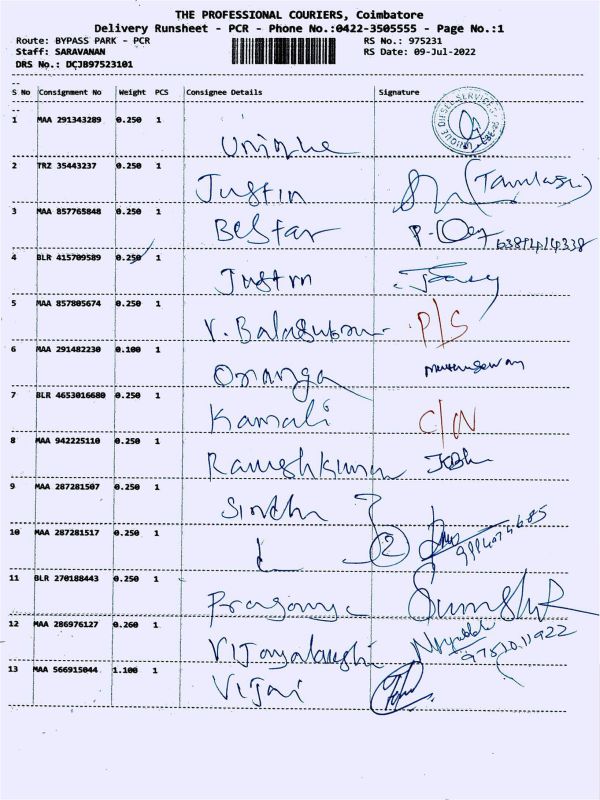 THE PROFESSIONAL COURIERS, Coimbatore
Delivery Runsheet - PCR - Phone No.:0422-3505555 - Page No.:1
Route: BYPASS PARK - PCR RS No.: 975231
Staff: SARAVANAN RS Date: 09-Jul-2022
DRS No.: DCJB97523101
S No Consignment No Weight PCS Consignee Details Signature
1 MAA 291343289 0.250 1
2 TRZ 35443237 0.250 1 Justin
3 MAA 857765848 0.250 1 Bestar
4 BLR 415709589 0.250 1 Justin
5 MAA 857805674 0.250 1 P/S
6 MAA 291482230 0.100 1 Omanga
7 BLR 4653016680 0.250 1 Kamali C/N
8 MAA 942225110 0.250 1 Rameshkumar
9 MAA 287281507 0.250 1 Sindhu
10 MAA 287281517 0.250 1 2 9994074685
11 BLR 270188443 0.250 1
12 MAA 286976127 0.260 1 Vijayalaxshi
13 MAA 566915044 1.100 1 Vijai